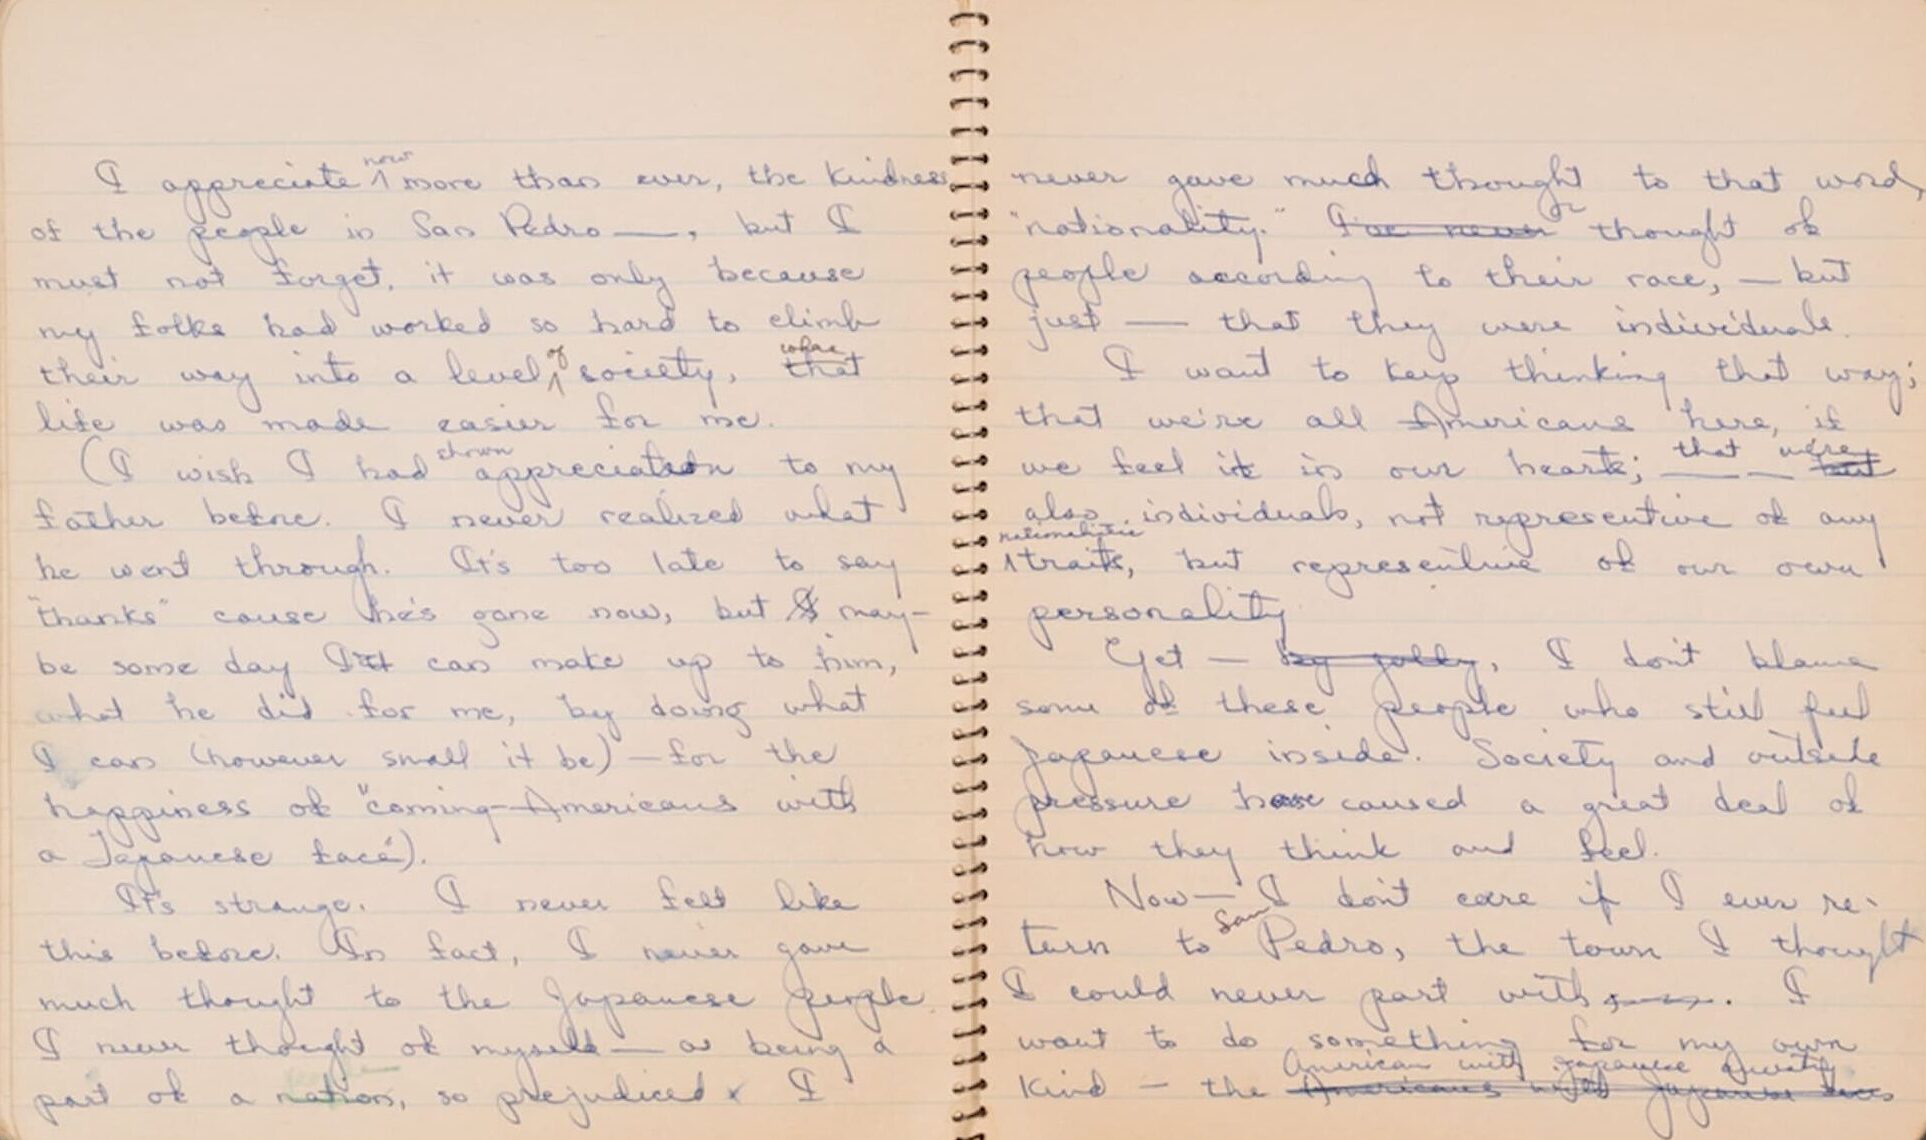 I appreciate now more than ever, the kindness
of the people in San Pedro —, but I
must not forget, it was only because
my folks had worked so hard to climb
their way into a level of society, that
life was made easier for me.
(I wish I had shown appreciation to my
father before. I never realized what
he went through. It's too late to say
"thanks" cause he's gone now, but I may-
be some day I can make up to him,
what he did for me, by doing what
I can (however small it be) — for the
happiness of "coming-Americans with
a Japanese face").
It's strange. I never felt like
this before. In fact, I never gave
much thought to the Japanese people.
I never thought of myself — as being a
part of a nation, so prejudiced. I
never gave much thought to that word,
"nationality." I've never thought of
people according to their race, — but
just — that they were individuals.
I want to keep thinking that way;
that we're all Americans here, if
we feel it in our hearts; — — that we're but
also individuals, not representive of any
nationalistic traits, but representive of our own
personality
Yet — by golly, I don't blame
some of these people who still feel
Japanese inside. Society and outside
pressure have caused a great deal of
how they think and feel.
Now — I don't care if I ever re-
turn to San Pedro, the town I thought
I could never part with. I
want to do something for my own
American with Japanese
kind — the Americans with Japanese faces